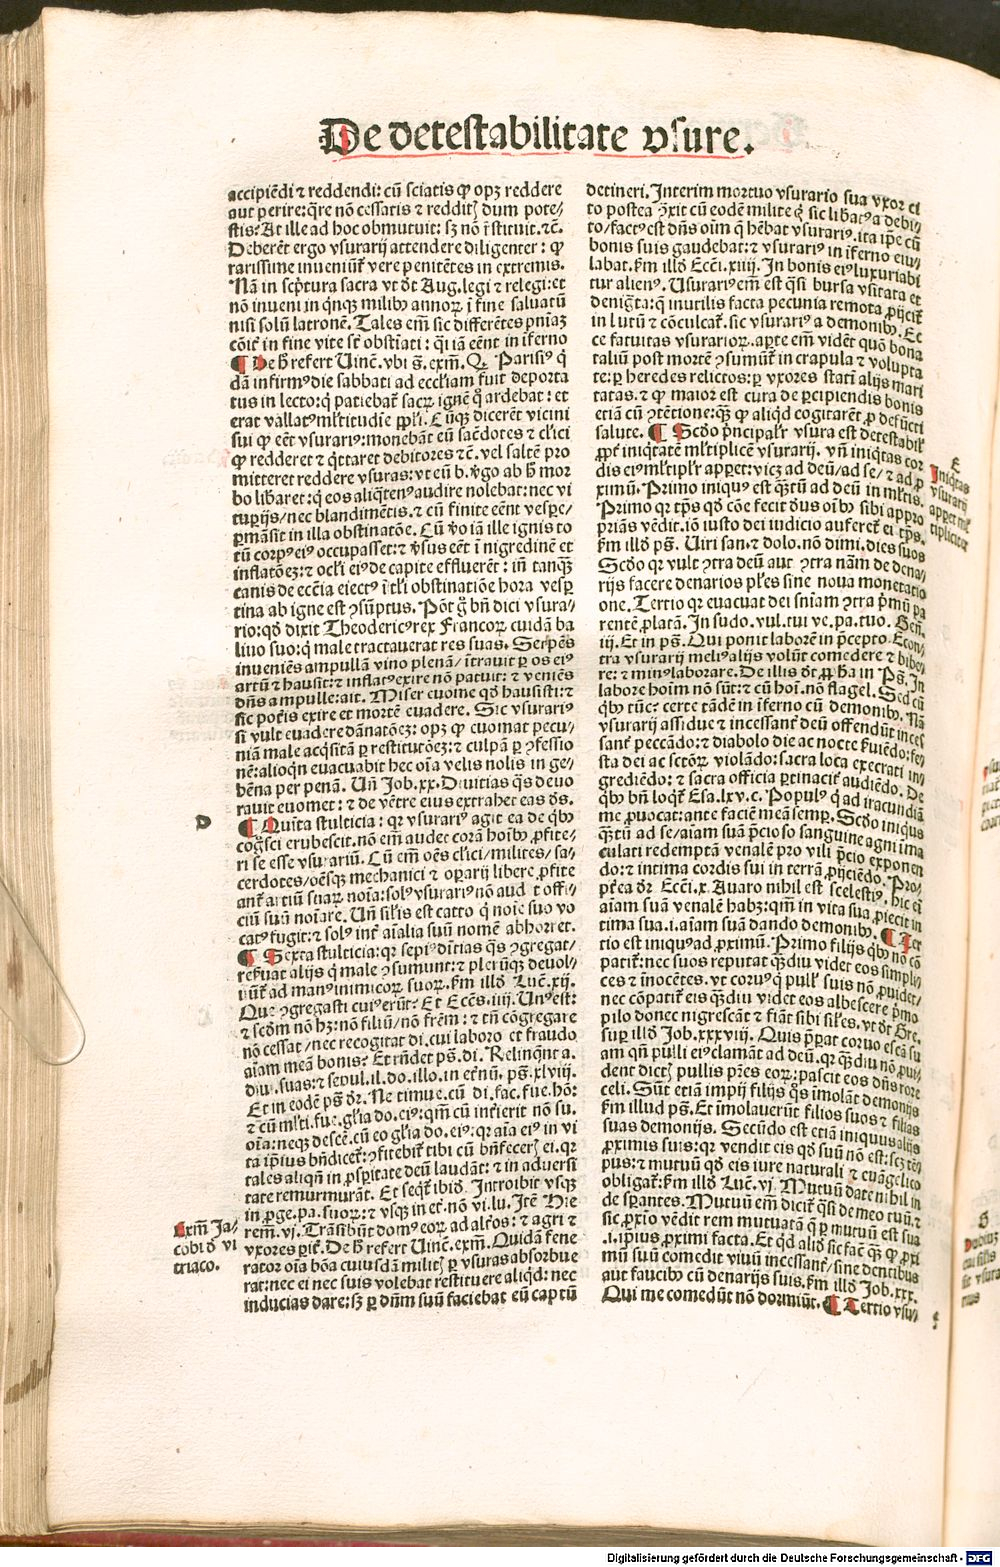 De detestabilitate vsure.
accipiēdi ⁊ reddendi: cū sciatis ꝙ opꝫ reddere
aut perire: q̄re nō cessatis ⁊ redditꝭ dum pote/
stis? At ille ad hoc obmutuit: sꝫ nō rīstituit. ⁊c̄.
Deberēt ergo vsurarij attendere diligenter: ꝙ
rarissime inueniūt̄ vere penitētes in extremis.
Nā in scp̄tura sacra vt dt̄ Aug. legi ⁊ relegi: et
nō inueni in qͥnqꝫ milibꝰ annoꝝ ī fine saluatū
nisi solū latronē. Tales em̄ sic differētes pn̄iaꝫ
cōit̄ in fine vite st̄ obstīati: qꝛ iā eēnt in īferno
¶ De h̄ refert Uinc̄. vbi s̄. exm̄. Q̄ Parisiꝰ qͥ
dā infirmꝰ die sabbati ad eccl̄iam fuit deporta
tus in lecto: qͥ patiebat̄ sacꝝ ignē qͥ ardebat: et
erat vallatꝰ ml̄titudīe ppl̄i. Cūqꝫ dicerēt vicini
sui ꝙ eēt vsurariꝰ: monebāt eū sac̄dotes ⁊ cl̄ici
ꝙ redderet ⁊ qͥttaret debitores ⁊c̄. vel saltē pro
mitteret reddere vsuras: vt eū b. v̄go ab h̄ mor
bo lib̄aret: qͥ eos aliqͣtenꝰ audire nolebat: nec vi
tupijs/nec blandimētis. ⁊ cū finite eēnt vespe/
ꝑmāsit in illa obstinatōe. Cū v̄o iā ille ignis to
tū corpꝰ eiꝰ occupasset: ⁊ v̄sus eēt ī nigredinē et
inflatōeꝫ: ⁊ ocl̄i eiꝰ de capite effluerēt: in̄ tanqͣꝫ
canis de ecc̄ia eiectꝰ ī tl̄i obstinatiōe hora vesꝑ
tina ab igne est ꝯsūptus. Pōt gͦ bn̄ dici vsura/
rio: qd̄ dixit Theodericꝰ rex Francoꝝ cuidā ba
liuo suo: qͥ male tractauerat res suas. Serpēs
inueniēs ampullā vino plenā/ītrauit ꝑ os eiꝰ
artū ⁊ hausit: ⁊ inflatꝰ exire nō potuit: ⁊ veniēs
dn̄s ampulle: ait. Miser euome qd̄ hausisti: ⁊
sic poteris exire et mortē euadere. Sic vsurariꝰ
si vult euadere dānatōeꝫ: opꝫ ꝙ euomat pecu/
niā male acqͥsitā ꝑ restitutōeꝫ: ⁊ culpā ꝑ ꝯfessio
nē: alioqͥn euacuabit hec oīa velis nolis in ge/
hēna per penā. Un̄ Job. xx. Diuitias qͣs deuo
rauit euomet: ⁊ de vētre eius extrahet eas ds̄.
D
¶ Quīta stulticia: qꝛ vsurariꝰ agit ea de qͥbꝰ
coḡsci erubescit. nō em̄ audet corā hoībꝰ ꝓfite/
ri se esse vsurariū. Cū em̄ oēs cl̄ici/milites/sa/
cerdotes/oēsqꝫ mechanici ⁊ oꝑarij libere ꝓfite
ant̄ artiū suaꝝ noīa: solꝰ vsurariꝰ nō audet offi/
ciū suū noīare. Un̄ sil̄is est catto qͥ noīe suo vo
catꝰ fugit: ⁊ solꝰ int̄ aīalia suū nomē abhorret.
¶ Sexta stulticia: qꝛ sepiꝰ diītias qͣs ꝯgregat/
reb̄uat alijs qͥ male ꝯsumunt: ⁊ plerūqꝫ deuol/
uūt̄ ad manꝰ inimicoꝝ suoꝝ. ẜm illd̄ Luc̄. xij.
Que ꝯgregasti cuiꝰ erūt? Et Ecc̄s. iiij. Unꝰ est:
⁊ scd̄m nō hꝫ: nō filiū/nō frēm: ⁊ tn̄ cōgregare
nō cessat/nec recogitat di. cui laboro et fraudo
aīam meā bonis? Et rn̄det ps̄. di. Relinqͥnt a.
diui. suas: ⁊ sepul. il. do. illo. in et̄nū. ps̄. xlviii.
Et in eodē ps̄ dr̄. Ne timue. cū di. fac. fue. hō:
⁊ cū ml̄ti. fue. gl̄ia do. eiꝰ: qm̄ cū int̄ierit nō su.
oīa: neqꝫ descē. cū eo gl̄ia do. eiꝰ: qꝛ aīa eiꝰ in vi
ta ip̄ius bn̄dicet̄: ꝯfitebit̄ tibi cū bn̄fecerꝭ ei. qꝛ
tales aliqn̄ in ꝓspitate deū laudāt: ⁊ in aduersi
tate remurmurāt. Et seqt̄ ibid̄. Introibit vsqꝫ
in ꝓge. pa. suoꝝ: ⁊ vsqꝫ in et. nō vi. lu. Itē Hie
rem̄. vj. Trāsibūt domꝰ eoꝝ ad alt̄os: ⁊ agri ⁊
vxores ꝑit̄. De h̄ refert Uinc̄. exm̄. Quidā fene
rator oīa bōa cuiusdā militꝭ ꝑ vsuras absorbue
rat: nec ei nec suis volebat restituere aliqd̄: nec
inducias dare: sꝫ ꝑ dn̄m suū faciebat eū captū
Exm̄ Ja/
cobi d̄ vi
triaco.
detineri. Interim mortuo vsurario sua vxor ei
to postea ꝯxit cū eodē milite qͥ sic lib̄atꝰ a debi/
to/factꝰ est dn̄s oīm qͥ hēbat vsurariꝰ. ita ip̄e cū
bonis suis gaudebat: ⁊ vsurariꝰ in īferno eiu/
labat. ẜm illd̄ Ecc̄i. xiiij. In bonis eiꝰ luxuriabi
tur alienꝰ. Usurariꝰ em̄ est qͣsi bursa vsitata et
denigͣta: qͥ inutilis facta pecunia remota ꝓijcit̄
in lutū ⁊ cōculcat̄. sic vsurariꝰ a demonibꝰ. Ec
ce fatuitas vsurarioꝝ. aꝑte em̄ vidēt quō bona
taliū post mortē ꝯsumūt̄ in crapula ⁊ volupta
te: ꝑ heredes relictos: ꝑ vxores statī alijs mari
tatas. ⁊ ꝙ maior est cura de ꝑcipiendis bonis
etiā cū ꝯtētione: qͣꝫ ꝙ aliqd̄ cogitarēt ꝓ defūcti
salute. ¶ Scd̄o pͥncipalr̄ vsura est detestabil̄
ꝓpt̄ iniqͥtatē ml̄tiplicē vsurarij. vn̄ iniqͥtas cor
dis eiꝰ ml̄tiplr̄ apꝑet: vicꝫ ad deū/ad se/⁊ ad ꝓ
ximū. Primo iniquꝰ est qͣꝫtū ad deū in ml̄tis.
Primo qꝛ tp̄s qd̄ cōe fecit dn̄s oībꝰ sibi appro
priās vēdit. iō iusto dei iudicio auferet̄ ei tp̄s.
ẜm illd̄ ps̄. Uiri san. ⁊ dolo. nō dimi. dies suos
Scd̄o qꝛ vult ꝯtra deū aut ꝯtra nām de dena/
rijs facere denarios pl̄es sine noua monetatio
one. Tertio qꝛ euacuat dei sn̄iam ꝯtra pͥmū pa
rentē ꝓlatā. In sudo. vul. tui ve. pa. tuo. Gen̄.
iij. Et in ps̄. Qui ponit laborē in p̄cepto. Econ/
tra vsurarij meliꝰ alijs volūt comedere ⁊ bibe/
re: ⁊ minꝰ laborare. De illis dt̄ ꝓpħa in Ps̄. In
labore hoīm nō sūt: ⁊ cū hoī. nō flagel. Sed cū
qͥbꝰ tūc? certe tādē in īferno cū demonibꝰ. Nā
vsurarij assidue ⁊ incessant̄ deū offendūt inces
sant̄ peccādo: ⁊ diabolo die ac nocte ẜuiēdo: fe/
sta dei ac sctōꝝ violādo: sacra loca execrati in/
grediēdo: ⁊ sacra officia ꝑtinacit̄ audiēdo. De
qͥbꝰ bn̄ loqͥt̄ Esa. lxv. c. Populꝰ qͥ ad iracundiā
me ꝓuocat: ante faciē meā semꝑ. Scd̄o iniqus
qͣꝫtū ad se/aīam suā p̄cioso sanguine agni īma
culati redemptā venalē pro vili p̄cio exponen
do: ⁊ intima cordis sui in terrā ꝓijciēdo. Pro/
pt̄ea dr̄ Ecc̄i. x. Auaro nihil est scelestiꝰ. hic eī
aīam suā venalē habꝫ: qm̄ in vita sua ꝓiecit in
tima sua. i. aīam suā dando demonibꝰ. ¶ Ter
tio est iniquꝰ ad ꝓximū. Primo filijs qͥbꝰ nō cō
patit̄: nec suos reputat qͣꝫdiu videt eos simpli/
ces ⁊ inocētes. vt coruꝰ qͥ pull̄ suis nō ꝓuidet/
nec cōpatit̄ eis qͣꝫdiu videt eos albescere pͥmo
pilo donec nigrescāt ⁊ fiāt sibi sil̄es. vt dt̄ Gre.
suꝑ illd̄ Job. xxxviii. Quis p̄parat coruo escā su
am qn̄ pulli eiꝰ clamāt ad deū. qꝛ qͣꝫdiu nō ꝓui/
dent dictꝭ pullis pr̄es eoꝝ: pascit eos dn̄s rore
celi. Sūt etiā impij filijs qͦs īmolāt demonijs
ẜm illud ps̄. Et īmolauerūt filios suos ⁊ filias
suas demonijs. Secūdo est etiā iniquus alijs
ꝓximis suis: qꝛ vendit eis qd̄ suū nō est: scꝫ tē
pus: ⁊ mutuū qd̄ eis iure naturali ⁊ euāgelico
obligat̄. ẜm illd̄ Luc̄. vj. Mutuū date nihil in
de sꝑantes. Mutuū em̄ dicit̄ qͣsi de meo tuū. ⁊
sic ꝓxīo vēdit rem mutuatā qͥ ꝑ mutuū est sua
.i. ip̄ius ꝓximi facta. Et qd̄ aliꝰ sic fac̄ qͣꝫ ꝙ ꝓxi
mū suū comedit viuū incessant̄/sine dentibus
aut faucibꝰ cū denarijs suis. ẜm illd̄ Job. xxx.
Qui me comedūt nō dormiūt. ¶ Tertio vsu/
E
Iniqͥtas
vsurarij
apꝑet ml̄
tipliciter
S
Dubiuꝫ
Digitalisierung gefördert durch die Deutsche Forschungsgemeinschaft - DFG